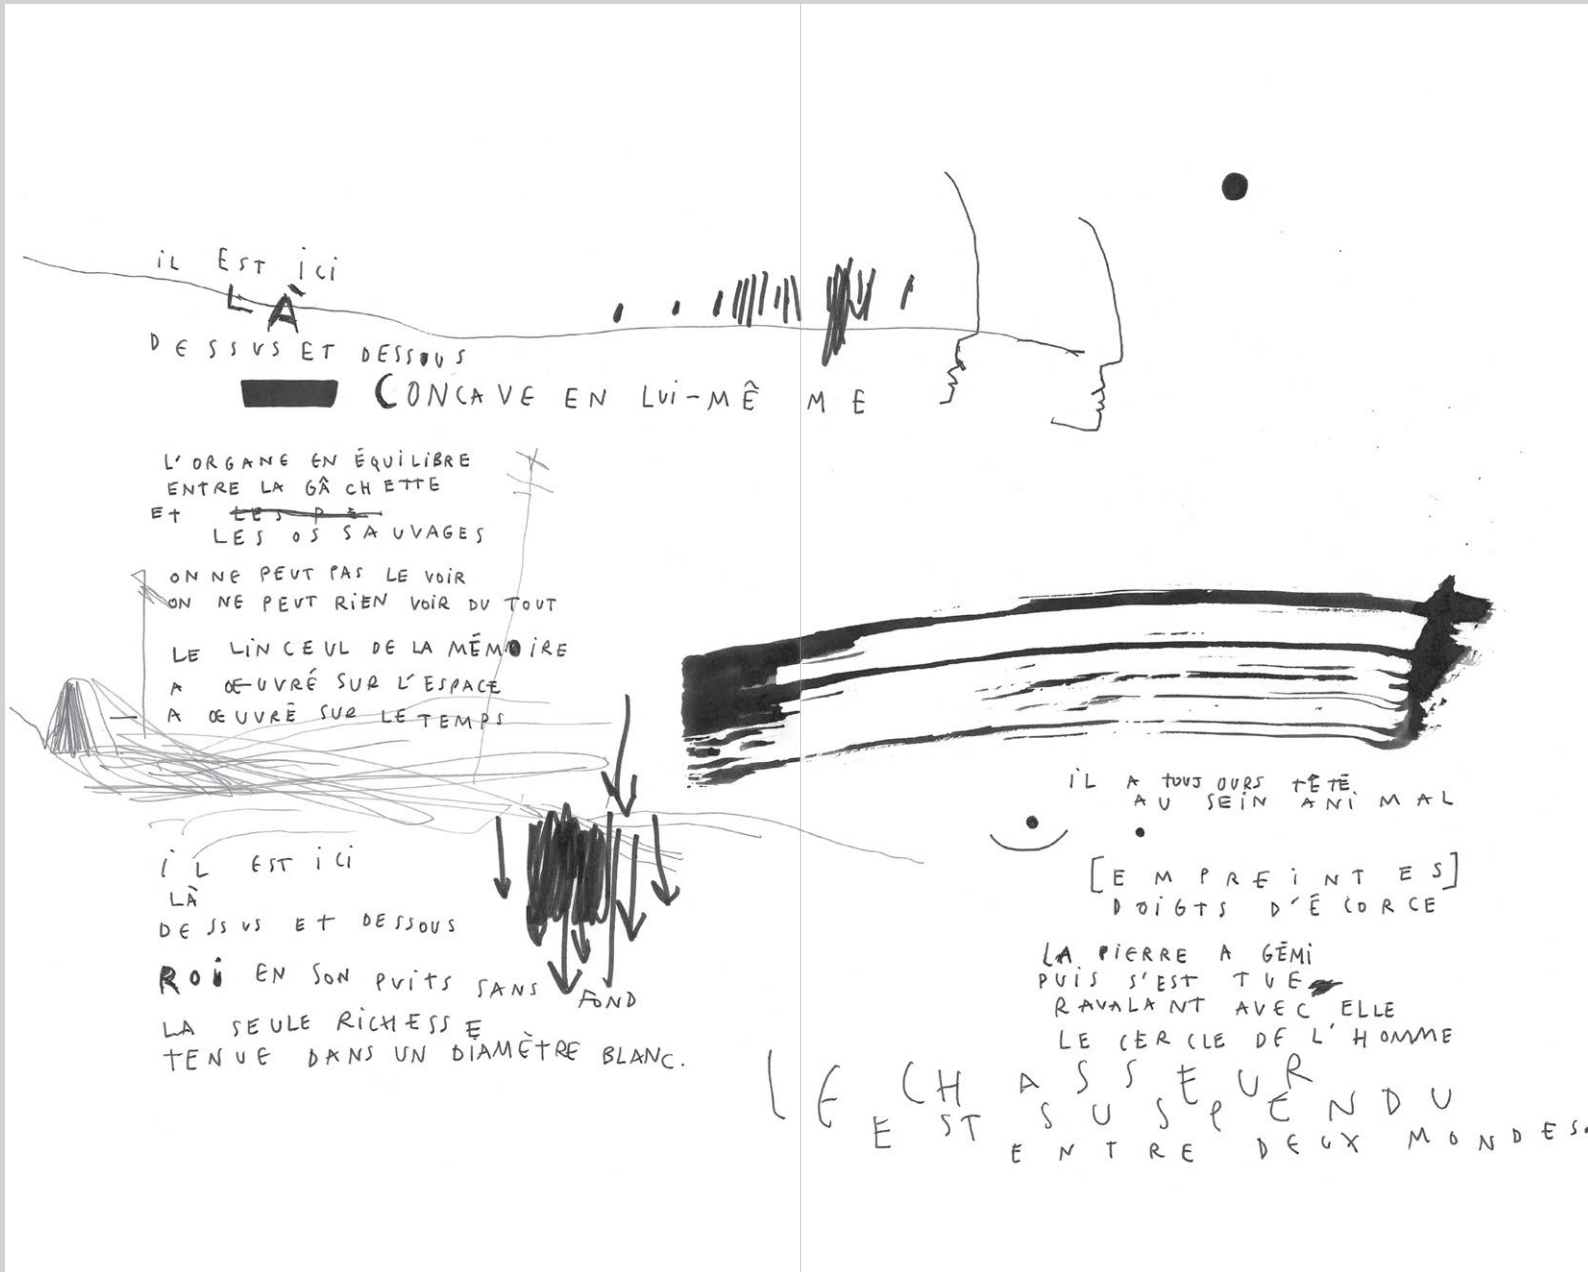 iL EST ici
LÀ
DESSUS ET DESSOUS
CONCAVE EN LUI-MÊME
L'ORGANE EN ÉQUILIBRE
ENTRE LA GÂCHETTE
ET LES PE
LES OS SAUVAGES
ON NE PEUT PAS LE VOIR
ON NE PEUT RIEN VOIR DU TOUT
LE LINCEUL DE LA MÉMOIRE
A ŒUVRÉ SUR L'ESPACE
A ŒUVRÉ SUR LE TEMPS
iL EST ici
LÀ
DESSUS ET DESSOUS
ROi EN SON PUITS SANS FOND
LA SEULE RICHESSE
TENUE DANS UN DIAMÈTRE BLANC.
iL A TOUJOURS TÊTÉ
AU SEIN ANIMAL
[EMPREINTES]
DOIGTS D'ÉCORCE
LA PIERRE A GÉMI
PUIS S'EST TUE
RAVALANT AVEC ELLE
LE CERCLE DE L'HOMME
LE CHASSEUR
EST SUSPENDU
ENTRE DEUX MONDES.